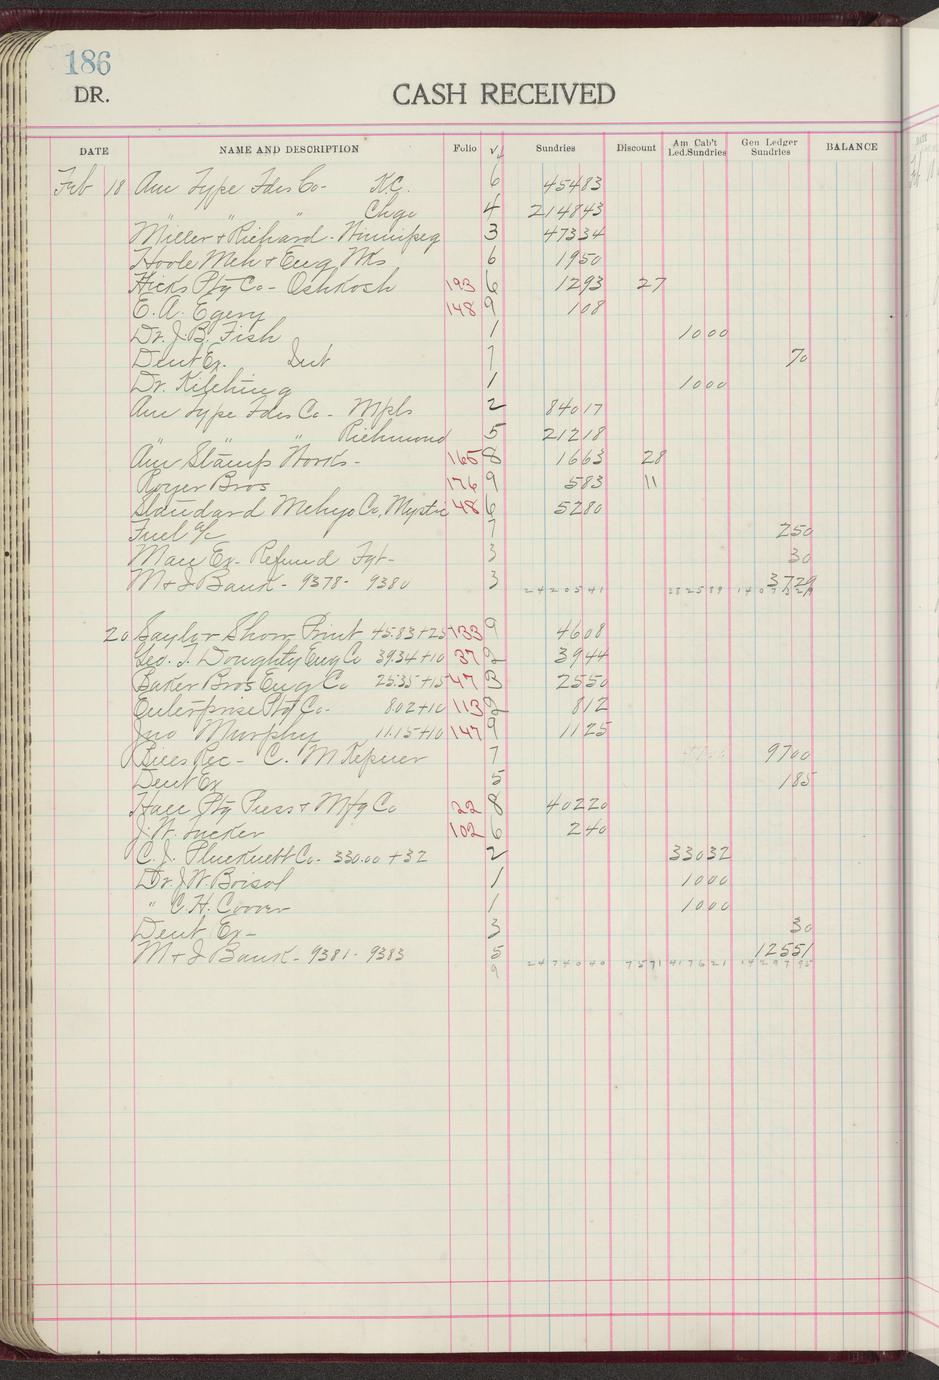 186
DR. CASH RECEIVED
DATE NAME AND DESCRIPTION Folio √ Sundries Discount Am Cab't Led.Sundries Gen Ledger Sundries BALANCE
Feb 18 Am Type Fdrs Co- K.C. 6 45483
" " " Chgo 4 214843
Miller & Richard - Winnipeg 3 47334
Hoole Mch & Eng Wks 6 1950
Hicks Ptg Co - Oshkosh 193 6 1293 27
E. A. Egery 148 9 108
Dr. J. B. Fish 1 1000
Dent Ex. 7 70
Dr. 1 1000
Am Type Fdrs Co - Mpls 2 84017
" " " Richmond 5 21218
Am Stamp Works - 165 8 1663 28
Royer Bros 176 9 583 11
Standard Mchy Co, Mystic 48 6 5280
Fuel a/c 7 250
Man Ex - Refund Fgt - 3 30
M & J Bank - 9378 - 9380 3 2420541 3729
20 Saylor Show Print 45.83+25 133 9 4608
Geo. T. Doughty Eng Co 39.34+10 37 2 3944
Baker Bros Eng Co 25.35+15 47 3 2550
Enterprise Ptg Co - 8.02+10 113 2 812
Jno Murphy 11.15+10 147 9 1125
Bills Rec - C. M Kepner 7 9700
Dent Ex 5 185
Hall Ptg Press & Mfg Co 22 8 40220
J. W. Tucker 102 6 240
C. J. Plucknett Co - 330.00 + 32 2 33032
Dr. J. W. Boisol 1 1000
" C. H. Coover 1 1000
Dent Ex - 3 30
M & J Bank - 9381 - 9383 5 2474040 7571 417621 12551
9